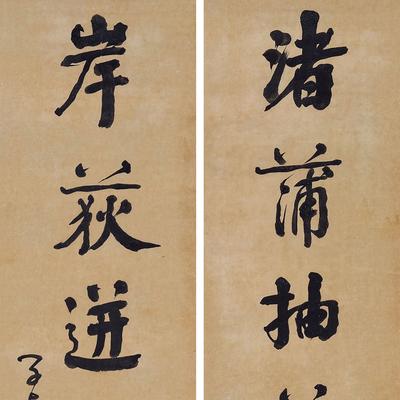 渚蒲抽
岸荻迸